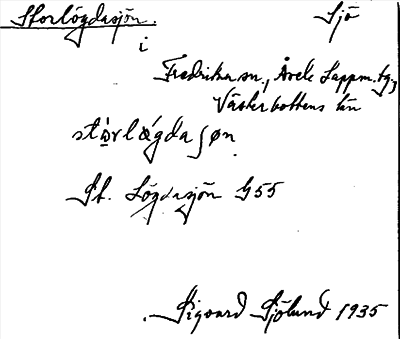 Storlögdasjön. Sjö
i
Fredrika sn., Åsele Lappm. tg,
Västerbottens län
stɷ̀rlǿgdaʃøn.
St. Lögdasjön G55
Sigvard Sjölund 1935